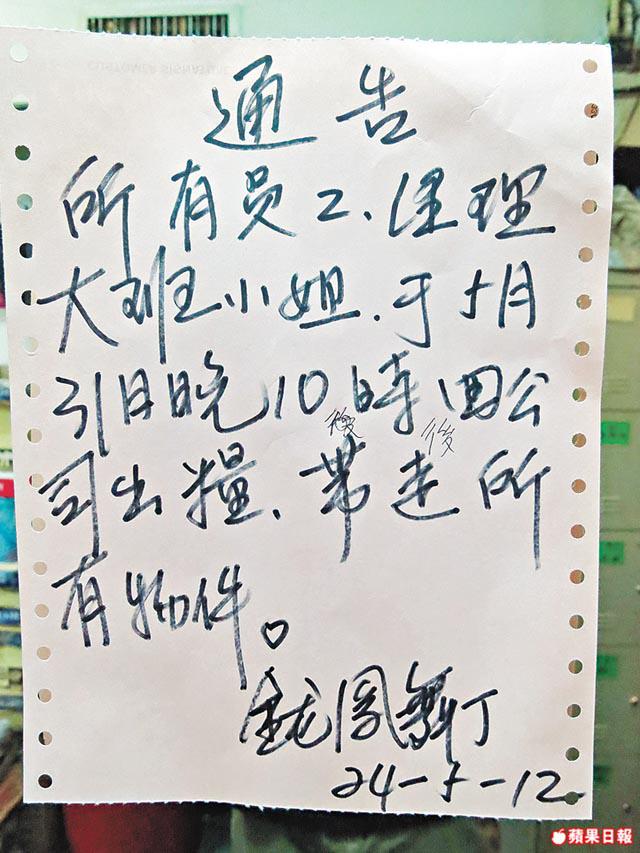 通告
所有员工、经理
大班小姐.于5月
31日晚10時回公
後 後
司出糧、带走所
有物件。
金龙凤舞丁
24-5-12
蘋果日報